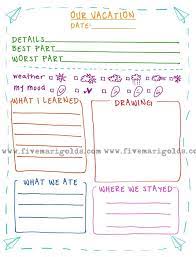 OUR VACATION
DATE:
DETAILS
BEST PART
WORST PART
weather
my mood
WHAT I LEARNED
DRAWING
www.fivemarigolds.com www.fivemarigolds.com
WHAT WE ATE
WHERE WE STAYED